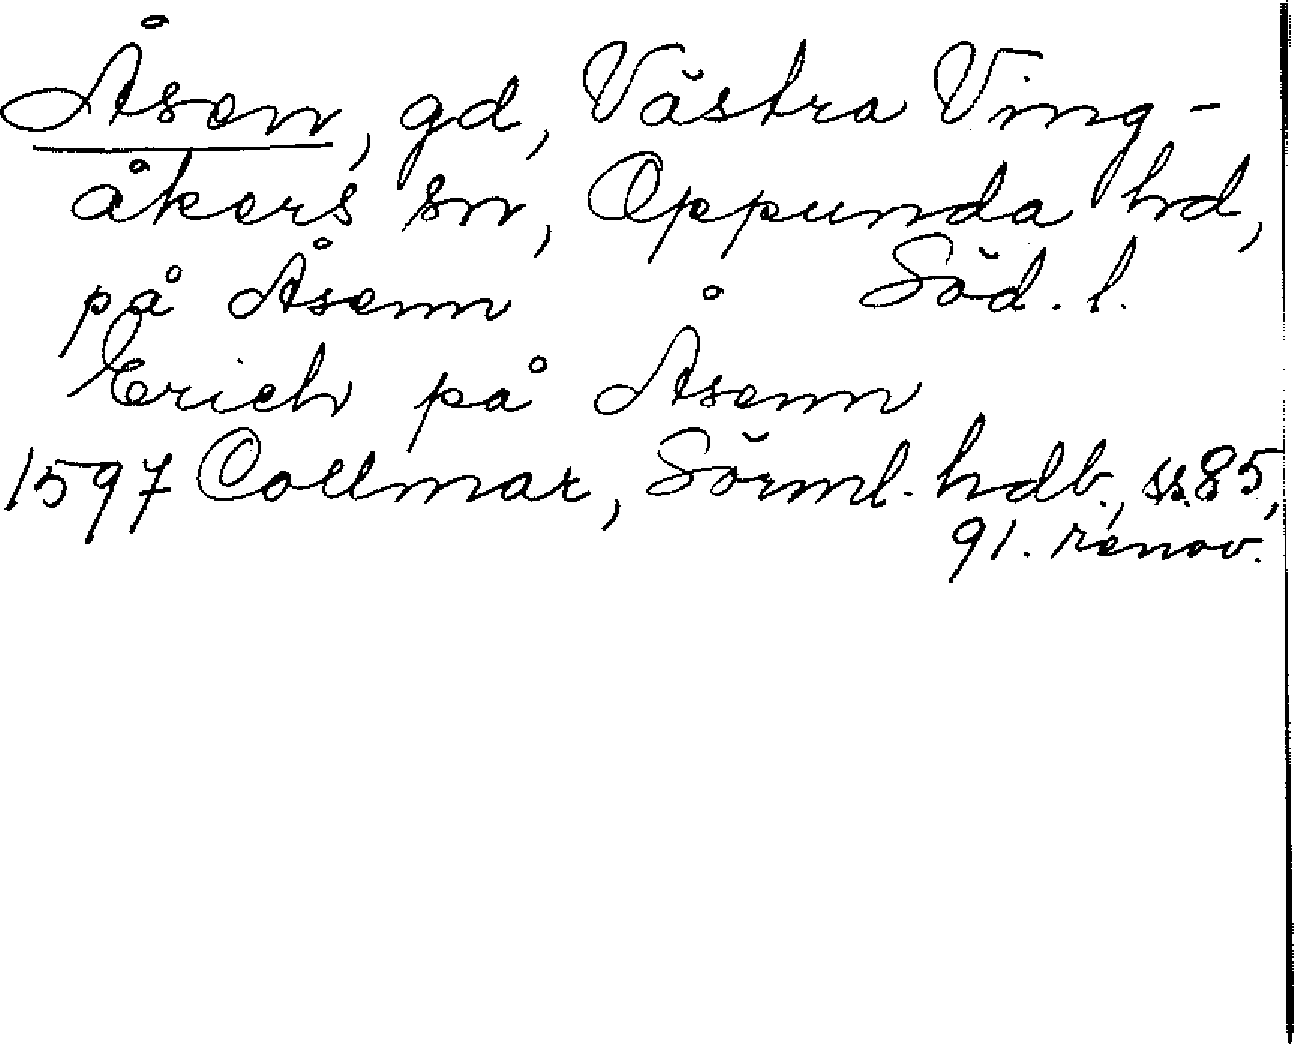 Åsen, gd, Västra Ving-
åkers sn, Oppunda hd,
på Åsenn Söd. l.
Erich på Åsenn
1597 Collmar, Sörml. hdb., ss. 85,
91. renov.